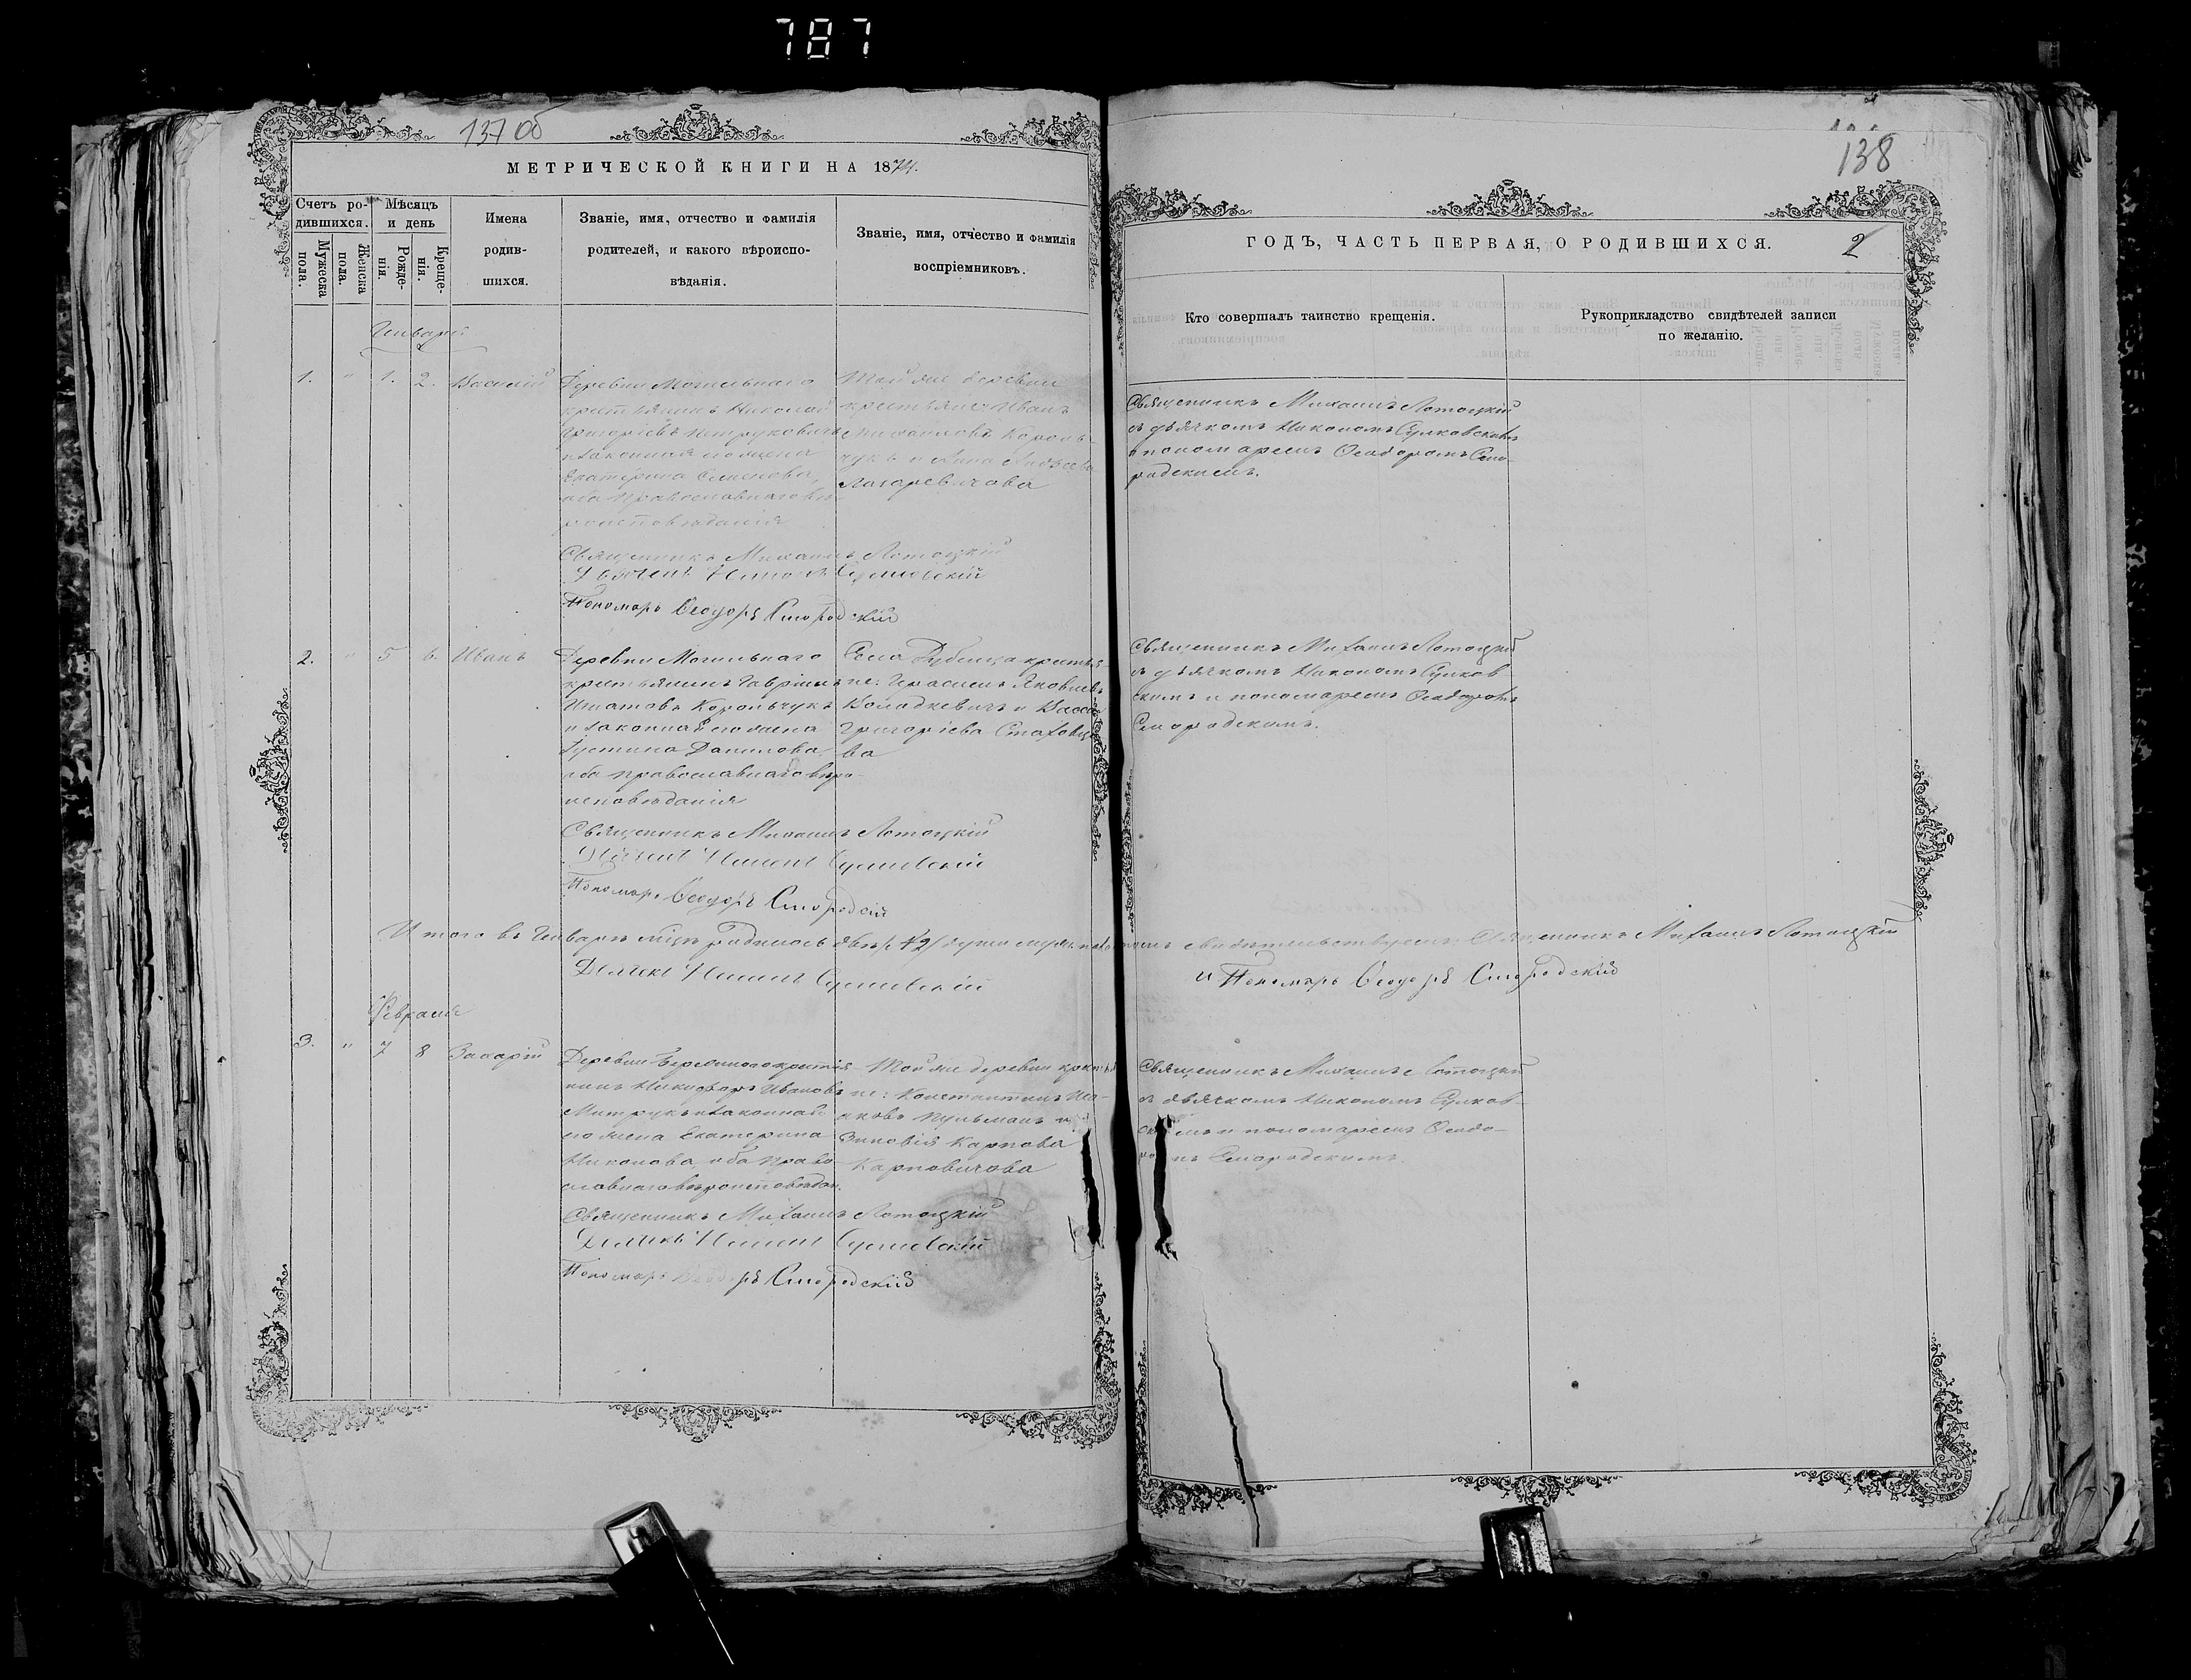 787
137 об
МЕТРИЧЕСКОЙ КНИГИ НА 1874.
Счетъ ро-
дившихся.
Мѣсяцъ
и день
Мужеска
пола.
Женска
пола.
Рожде-
нія.
Креще-
нія.
Имена
родив-
шихся.
Званіе, имя, отчество и фамилія
родителей, и какого вѣроиспо-
вѣданія.
Званіе, имя, отчество и фамилія
воспріемниковъ.
Генварь
1. " 1. 2. Василій
Деревни Могильнаго
крестьянинъ Николай
Григорьевъ Петруковичъ
и законная его жена
Екатерина Семенова,
оба православнаго вѣ-
роисповѣданія
Той же деревни
крестьяне: Иванъ
Михайловъ Король-
чукъ и Анна Андреева
Лазаревичова
Священникъ Михаилъ Лотоцкій
Дьячекъ Никонъ Сулковскій
Пономарь Ѳеодоръ Смородскій
2. " 5 6. Иванъ
Деревни Могильнаго
крестьянинъ Гавріилъ
Игнатовъ Корольчукъ
и законная его жена
Іустина Данилова
оба православнаго вѣро-
исповѣданія
Села крестья-
не: Яковлевъ
Колодкевичъ и Васса
Григоріева
ва
Священникъ Михаилъ Лотоцкій
Дьячекъ Никонъ Сулковскій
Пономарь Ѳеодоръ Смородскій
Итого въ Генварѣ мцѣ родилось двѣ /2/ души муж. пола
Дьячекъ Никонъ Сулковскій
Февраль
3. " 7 8 Захарій
Деревни крестья-
нинъ Никифоръ Ивановъ
Митрукъ и законная
его жена Екатерина
Никонова, оба право-
славнаго вѣроисповѣдан.
Той же деревни крестья
не: Константинъ Иса-
аковъ Пульманъ и
Зиновія Карпова
Карповичова
Священникъ Михаилъ Лотоцкій
Дьячекъ Никонъ Сулковскій
Пономарь Ѳеодоръ Смородскій
138
ГОДЪ, ЧАСТЬ ПЕРВАЯ, О РОДИВШИХСЯ.
2
Кто совершалъ таинство крещенія.
Рукоприкладство свидѣтелей записи
по желанію.
Священникъ Михаилъ Лотоцкій
съ дьячкомъ Никономъ Сулковскимъ
и пономаремъ Ѳеодоромъ Смо-
родскимъ.
Священникъ Михаилъ Лотоцкій
съ дьячкомъ Никономъ Сулков
скимъ и пономаремъ Ѳеодоромъ
Смородскимъ.
свидѣтельствуемъ: Священникъ Михаилъ Лотоцкій
и Пономарь Ѳеодоръ Смородскій
Священникъ Михаилъ Лотоцкій
съ дьячкомъ Никономъ Сулков-
скимъ и пономаремъ Ѳеодо-
ромъ Смородскимъ.